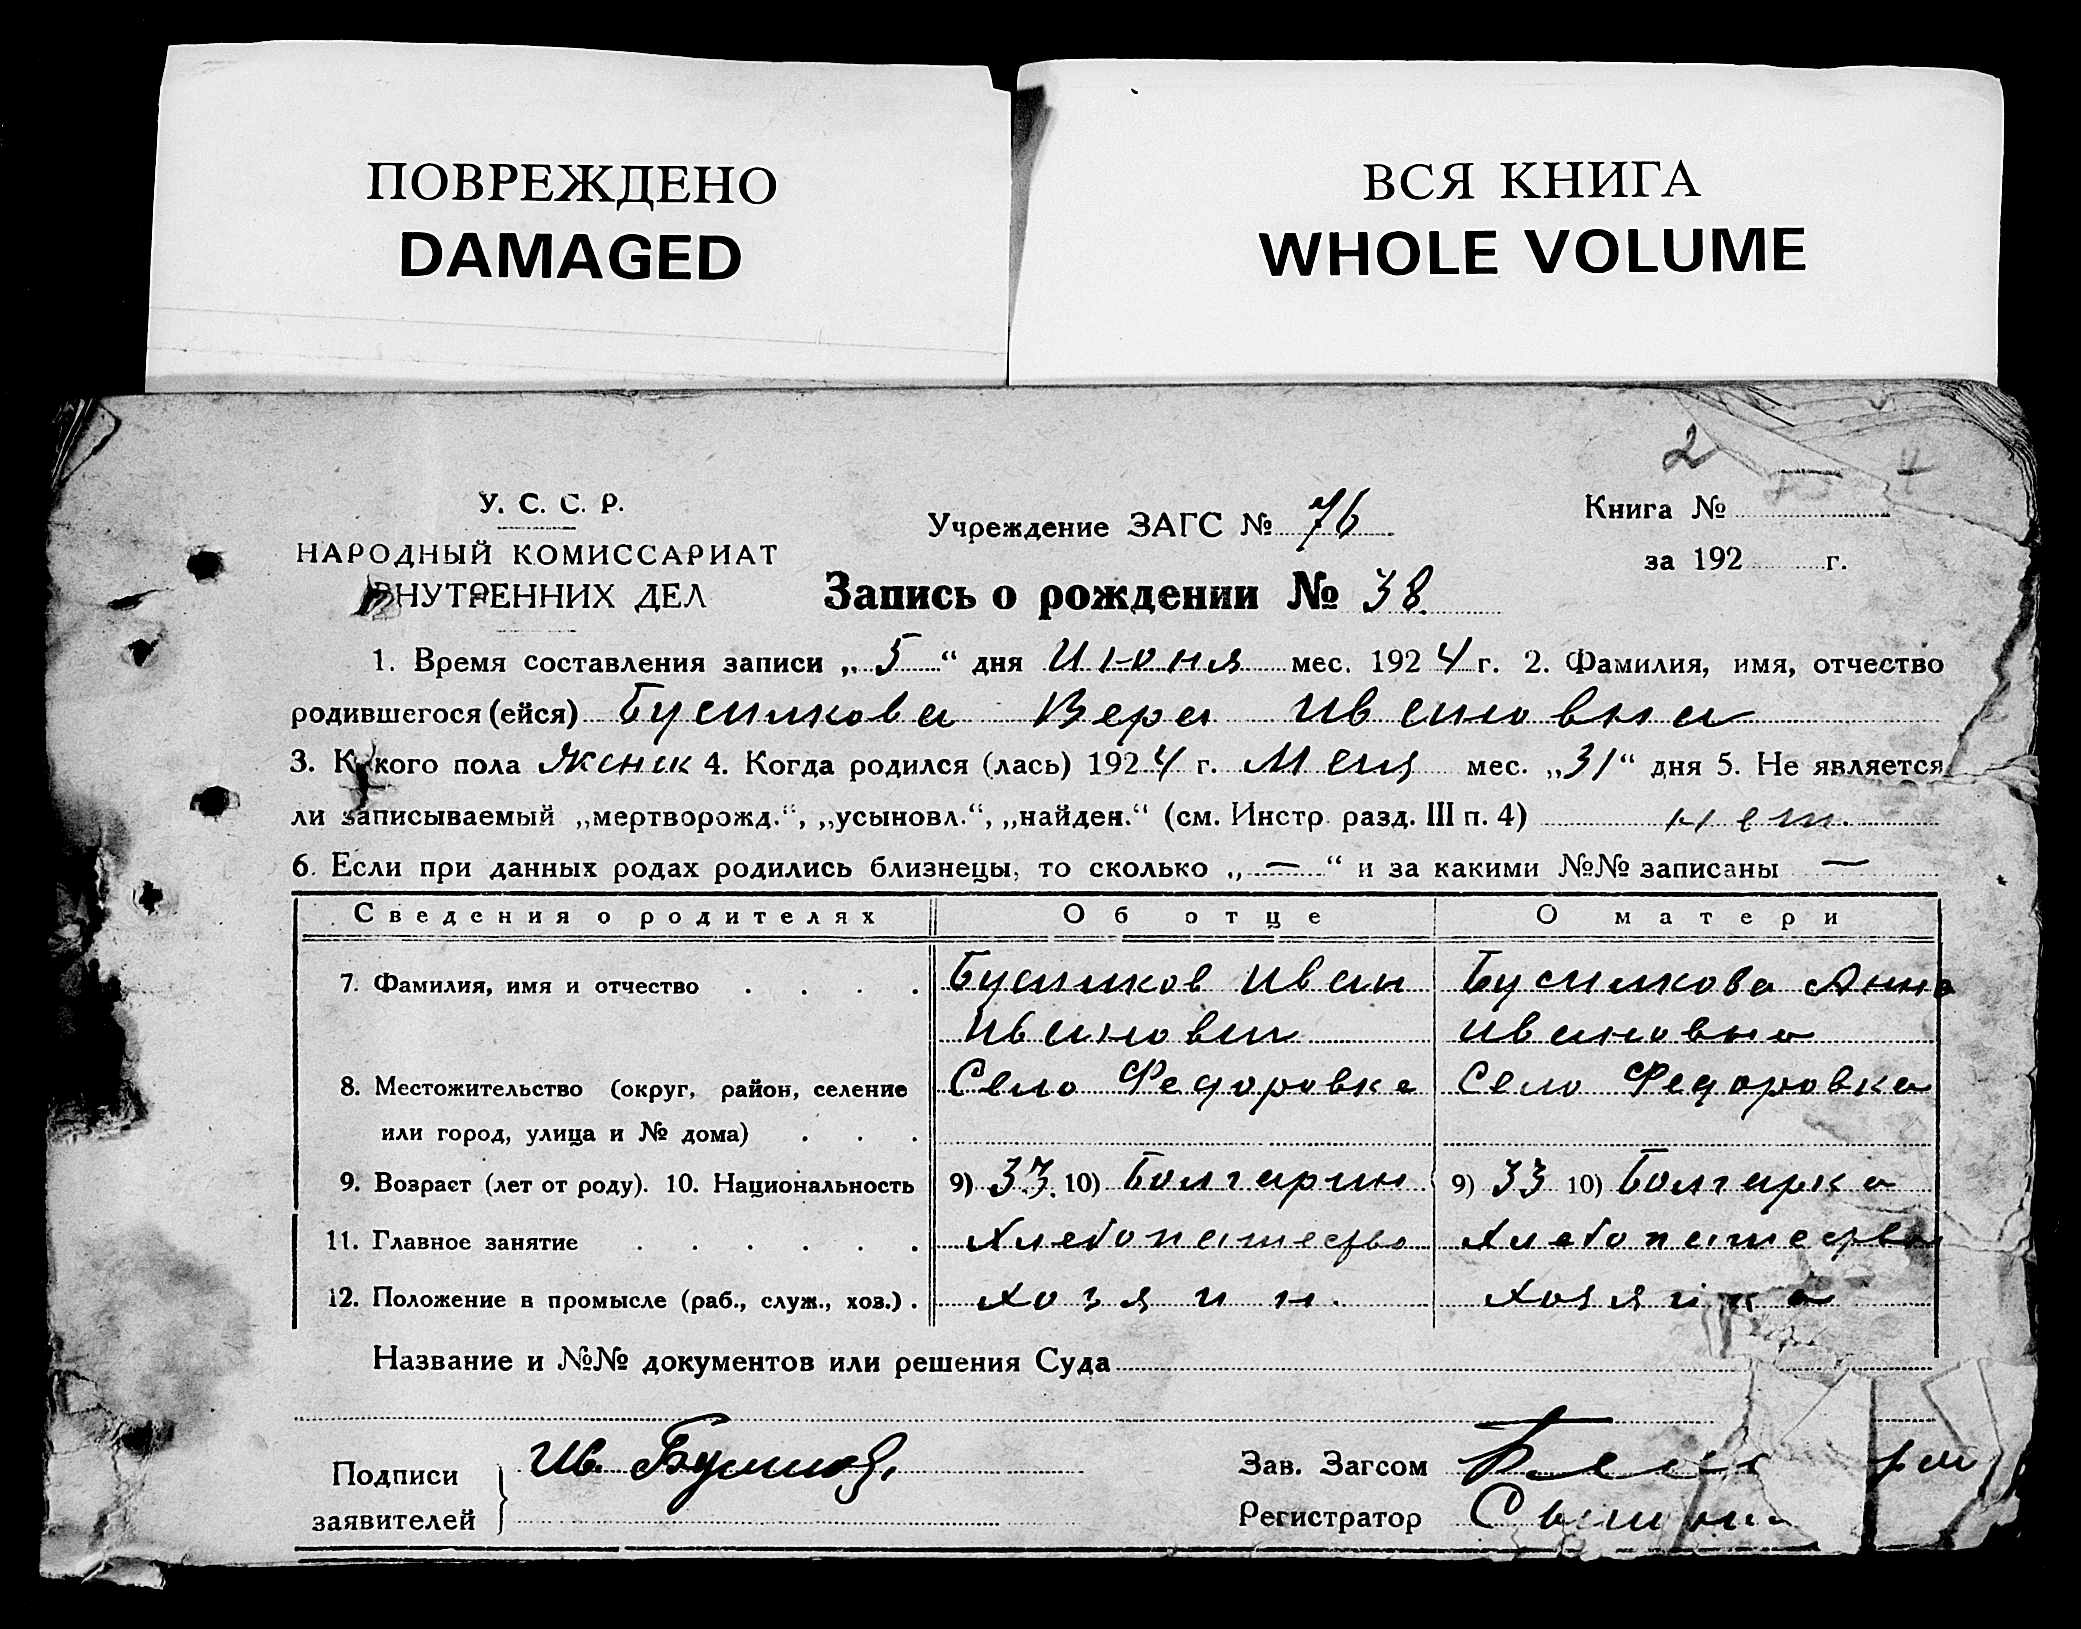 ПОВРЕЖДЕНО
DAMAGED
ВСЯ КНИГА
WHOLE VOLUME
2
4
У. С. С. Р.
НАРОДНЫЙ КОМИССАРИАТ
ВНУТРЕННИХ ДЕЛ
Учреждение ЗАГС № 76
Книга №
за 192 г.
Запись о рождении № 38
1. Время составления записи „ 5 “ дня Июня мес. 1924 г. 2. Фамилия, имя, отчество
родившегося (ейся) Бусилкова Вера Ивановна
3. Какого пола женск 4. Когда родился (лась) 1924 г. Мая мес. „31“ дня 5. Не является
ли записываемый „мертворожд.“, „усыновл.“, „найден.“ (см. Инстр. разд. III п. 4) нет.
6. Если при данных родах родились близнецы, то сколько „ — “ и за какими №№ записаны —
Сведения о родителях Об отце О матери
7. Фамилия, имя и отчество . . . . Бусилков Иван Бусилкова Анна
Иванович Ивановна
8. Местожительство (округ, район, селение Село Федоровка Село Федоровка
или город, улица и № дома) . . .
9. Возраст (лет от роду). 10. Национальность 9) 33. 10) Болгарин 9) 33 10) Болгарка
11. Главное занятие . . . . . . Хлебопашество Хлебопашество
12. Положение в промысле (раб., служ., хоз.) . Хозяин. Хозяйка
Название и №№ документов или решения Суда
Подписи
заявителей
Ив.
Зав. Загсом
Регистратор